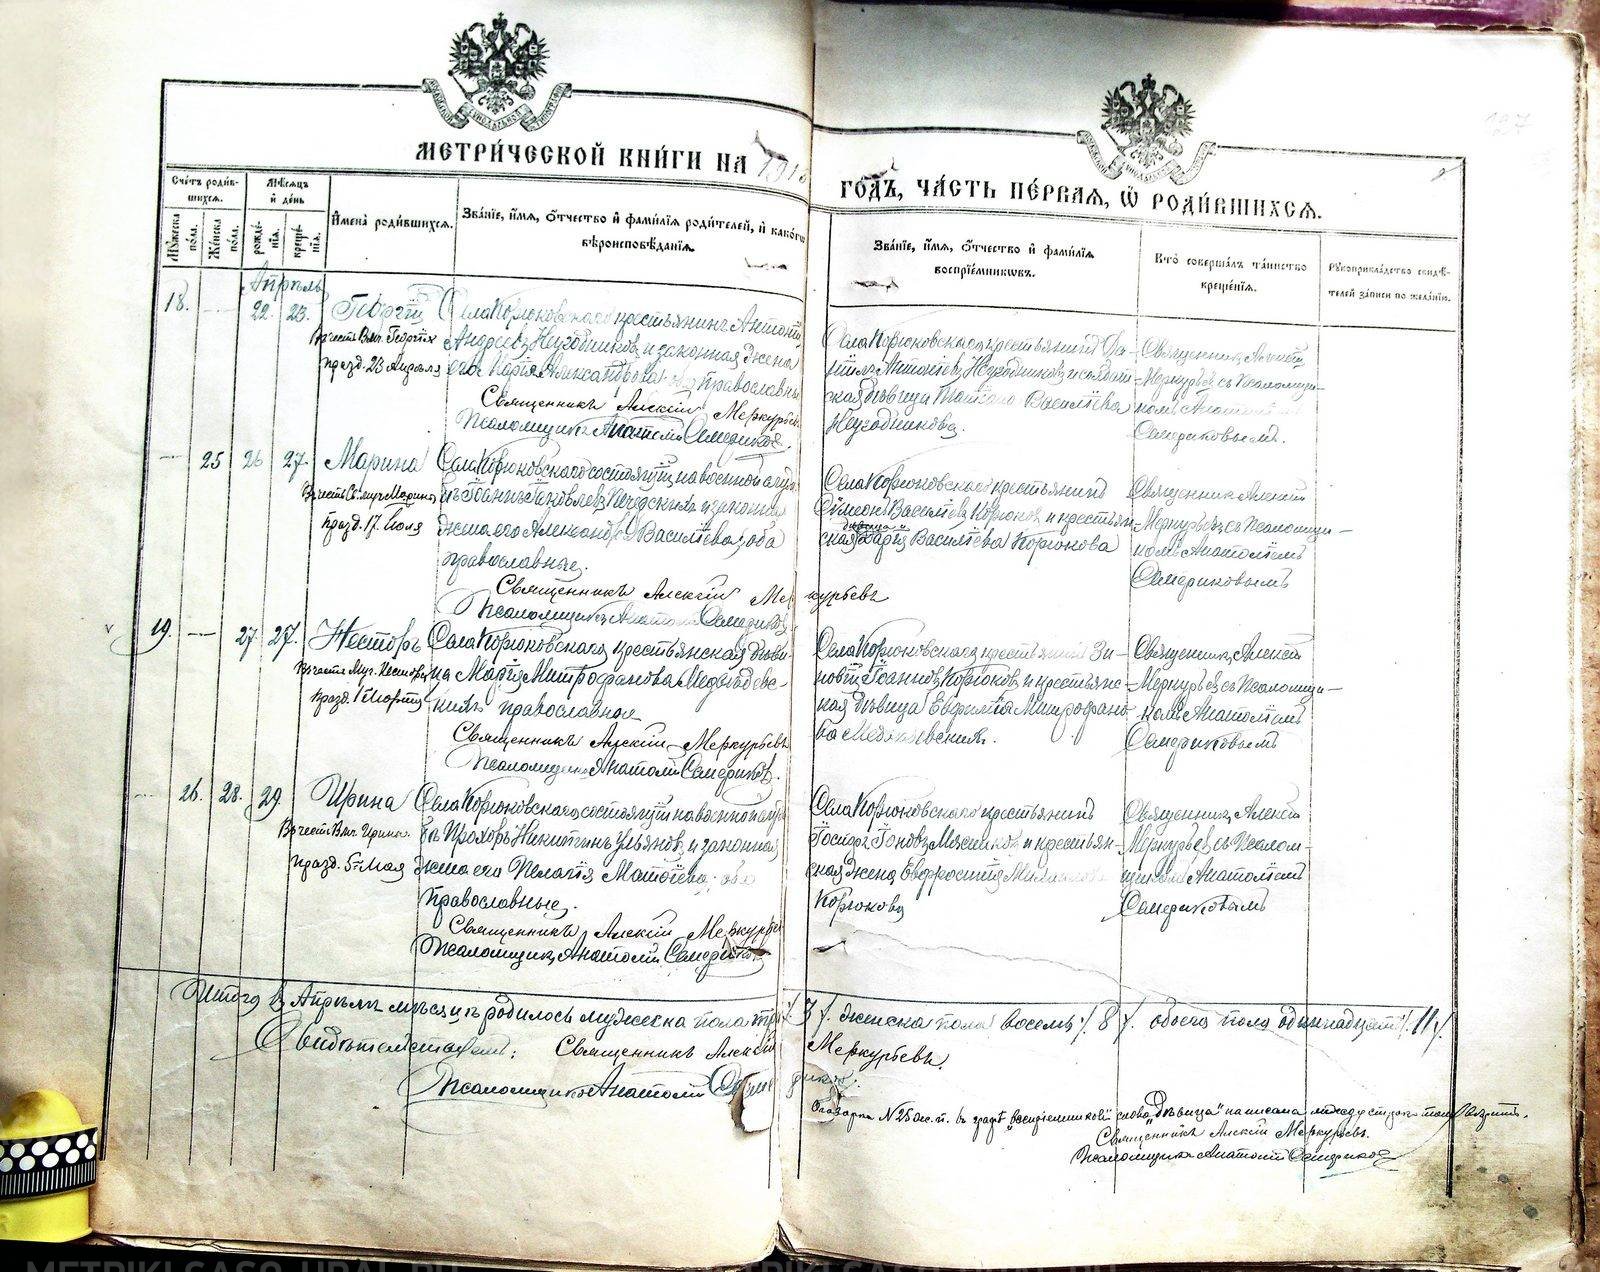 МЕТРИ́ЧЕСКОЙ КНИ́ГИ НА 191
ГОДЪ, ЧА́СТЬ ПЕ́РВАЯ, Ѽ РОДИ́ВШИХСЯ.
Сче́тъ роди́вшихся.
Мѣ́сяцъ и҆ де́нь
Мꙋ́жеска по́ла.
Же́нска по́ла.
рожде́нїя.
креще́нїя.
И҆мена̀ роди́вшихся.
Зва́нїе, и҆́мя, ѻ҆́тчество и҆ фами́лїя роди́телей, и҆ како́гѡ
вѣроисповѣ́данїя.
Зва́нїе, и҆́мя, ѻ҆́тчество и҆ фами́лїя
воспрїе́мникѡвъ.
Кто̀ соверша́лъ та́инство
креще́нїя.
Рꙋкоприкла́дство свидѣ́телей за́писи по жела́нїю.
Апрѣль
18. 22. 23. Георгій
Въ честь Влмч. Георгія
празд. 23 Апрѣля
Села Корюковскаго крестьянинъ Антоній
Андреевъ Неугодниковъ и законная жена
его Марія Александрова оба православные
Священникъ Алексій Меркурьевъ
Псаломщикъ Анатолій Семериковъ.
Села Корюковскаго крестьянинъ Да-
ніилъ Антоніевъ Неугодниковъ и
ская дѣвица Васильева
Неугодникова.
Священникъ Алексій
Меркурьевъ съ Псаломщи-
комъ Анатоліемъ
Семериковымъ.
25 26 27 Марина
Въ честь Св. муч. Марины
празд. 17. Іюля
Села Корюковскаго состоящій на военной служ-
бѣ Іоаннъ Яковлевъ и законная
жена его Александра Васильева, оба
православные.
Священникъ Алексій Меркурьевъ
Псаломщикъ Анатолій Семериковъ
Села Корюковскаго крестьянинъ
Симеонъ Васильевъ Корюковъ и крестьян-
дѣвица
ская Дарія Васильева Корюкова
Священникъ Алексій
Меркурьевъ съ Псаломщи-
комъ Анатоліемъ
Семериковымъ
19. 27 27. Несторъ
Въ честь Муч. Нестора
празд. 1 Марта
Села Корюковскаго крестьянская дѣви-
ца Марія Митрофанова
православная
Священникъ Алексій Меркурьевъ
Псаломщикъ Анатолій Семериковъ.
Села Корюковскаго крестьянинъ Зи-
новій Іоанновъ Корюковъ и крестьянс-
кая дѣвица Евфимія Митрофано-
ва
Священникъ Алексій
Меркурьевъ съ Псаломщи-
комъ Анатоліемъ
Семериковымъ
26. 28. 29 Ирина
Въ честь Влмч. Ирины
празд. 5го Мая
Села Корюковскаго состоящій на военной служ-
бѣ Прохоръ Никитинъ Ульяновъ и законная
жена его Пелагія Матѳіева оба
православные.
Священникъ Алексій Меркурьевъ
Псаломщикъ Анатолій Семериковъ
Села Корюковскаго крестьянинъ
Іосифъ и крестьян-
ская жена Евфросинія
Корюкова
Священникъ Алексій
Меркурьевъ съ Псалом-
щикомъ Анатоліемъ
Семериковымъ
Итого въ Апрѣлѣ мѣсяцѣ родилось мужеска пола три /3/. женска пола восемь /8/. обоего пола одиннадцать /11/.
Свидѣтельствуемъ: Священникъ Алексій Меркурьевъ.
Псаломщикъ Анатолій Семериковъ.
Оговорка № 25 въ графѣ „воспріемниковъ" слово „дѣвица" написана между строкъ
Священникъ Алексій Меркурьевъ.
Псаломщикъ Анатолій Семериковъ